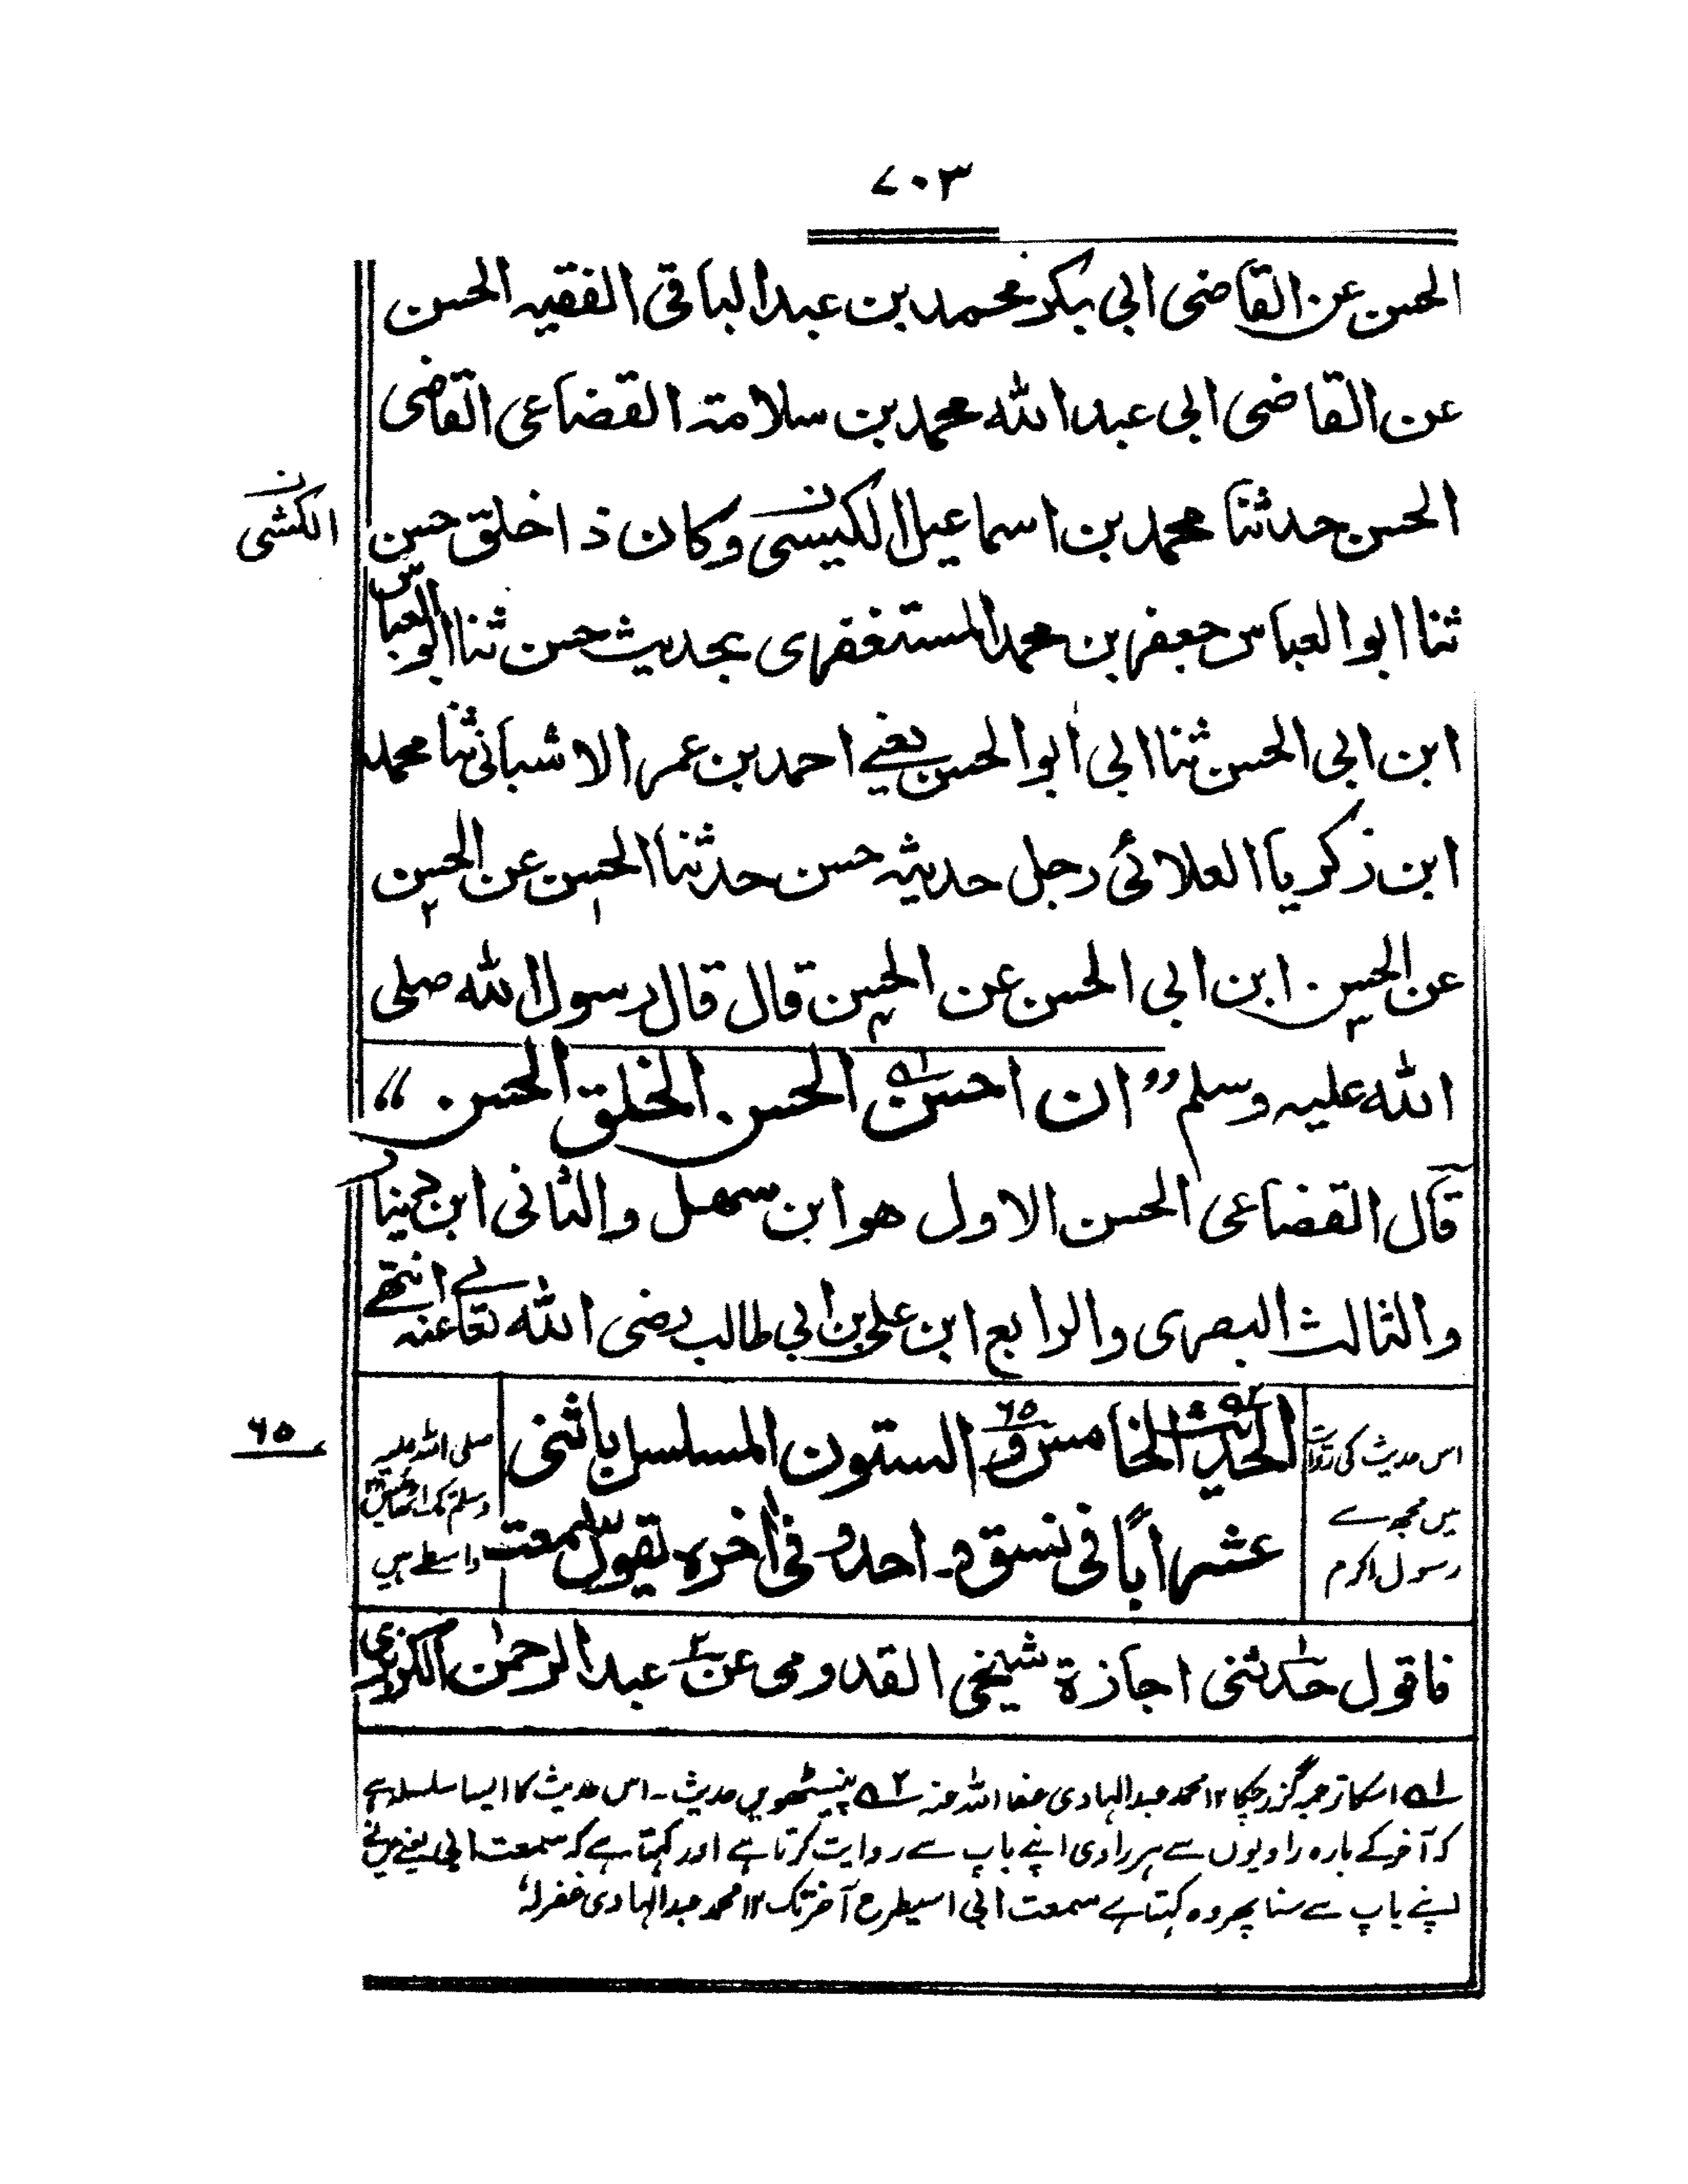 ٧٠٣
الحسن عن القاضی ابی بکر محمد بن عبد الباقی الفقیہ الحسن
عن القاضی ابی عبد اللہ محمد بن سلامۃ القضاعی القاضی
الحسن حدثنا محمد بن اسماعیل الکیسی وکان ذا خلق حسن
الکشی ن
ثنا ابو العباس جعفر بن محمد المستغفری بحدیث حسن ثنا ابو العباس
ابن ابی الحسن ثنا ابی ابو الحسن یعنے احمد بن عمر الاشبانی ثنا محمد
ابن زکریا العلائی رجل حدیثہ حسن حدثنا الحسن عن الحسن
عن الحسن ابن ابی الحسن عن الحسن قال قال رسول اللہ صلی
اللہ علیہ وسلم ”ان احسن الحسن الخلق الحسن“
قال القضاعی الحسن الاول ھو ابن سھل والثانی ابن دینار
والثالث البصری والرابع ابن علی بن ابی طالب رضی اللہ تعالے عنہ انتھے
الحدیث الخامس و الستون المسلسل باثنی
عشر اباً فی نسق واحد و فی اخرہ یقول سمعت
٦٥
اس حدیث کی روایت
میں مجھ سے
رسول اکرم
صلی اللہ علیہ
وسلم تک
واسطے ہیں
فاقول حدثنی اجازۃ شیخی القدومی عن عبد الرحمٰن الکزبری
لہ۱ اسکا ترجمہ گزر چکا ۱۲ محمد عبد الہادی عفا اللہ عنہ لہ۲ پینسٹھویں حدیث۔ اس حدیث کا ایسا سلسلہ ہے
کہ آخر کے بارہ راویوں سے ہر راوی اپنے باپ سے روایت کرتا ہے اور کہتا ہے کہ سمعت ابی یعنے میں نے
اپنے باپ سے سنا پھر وہ کہتا ہے سمعت ابی اسیطرح آخر تک ۱۲ محمد عبد الہادی غفرلہ